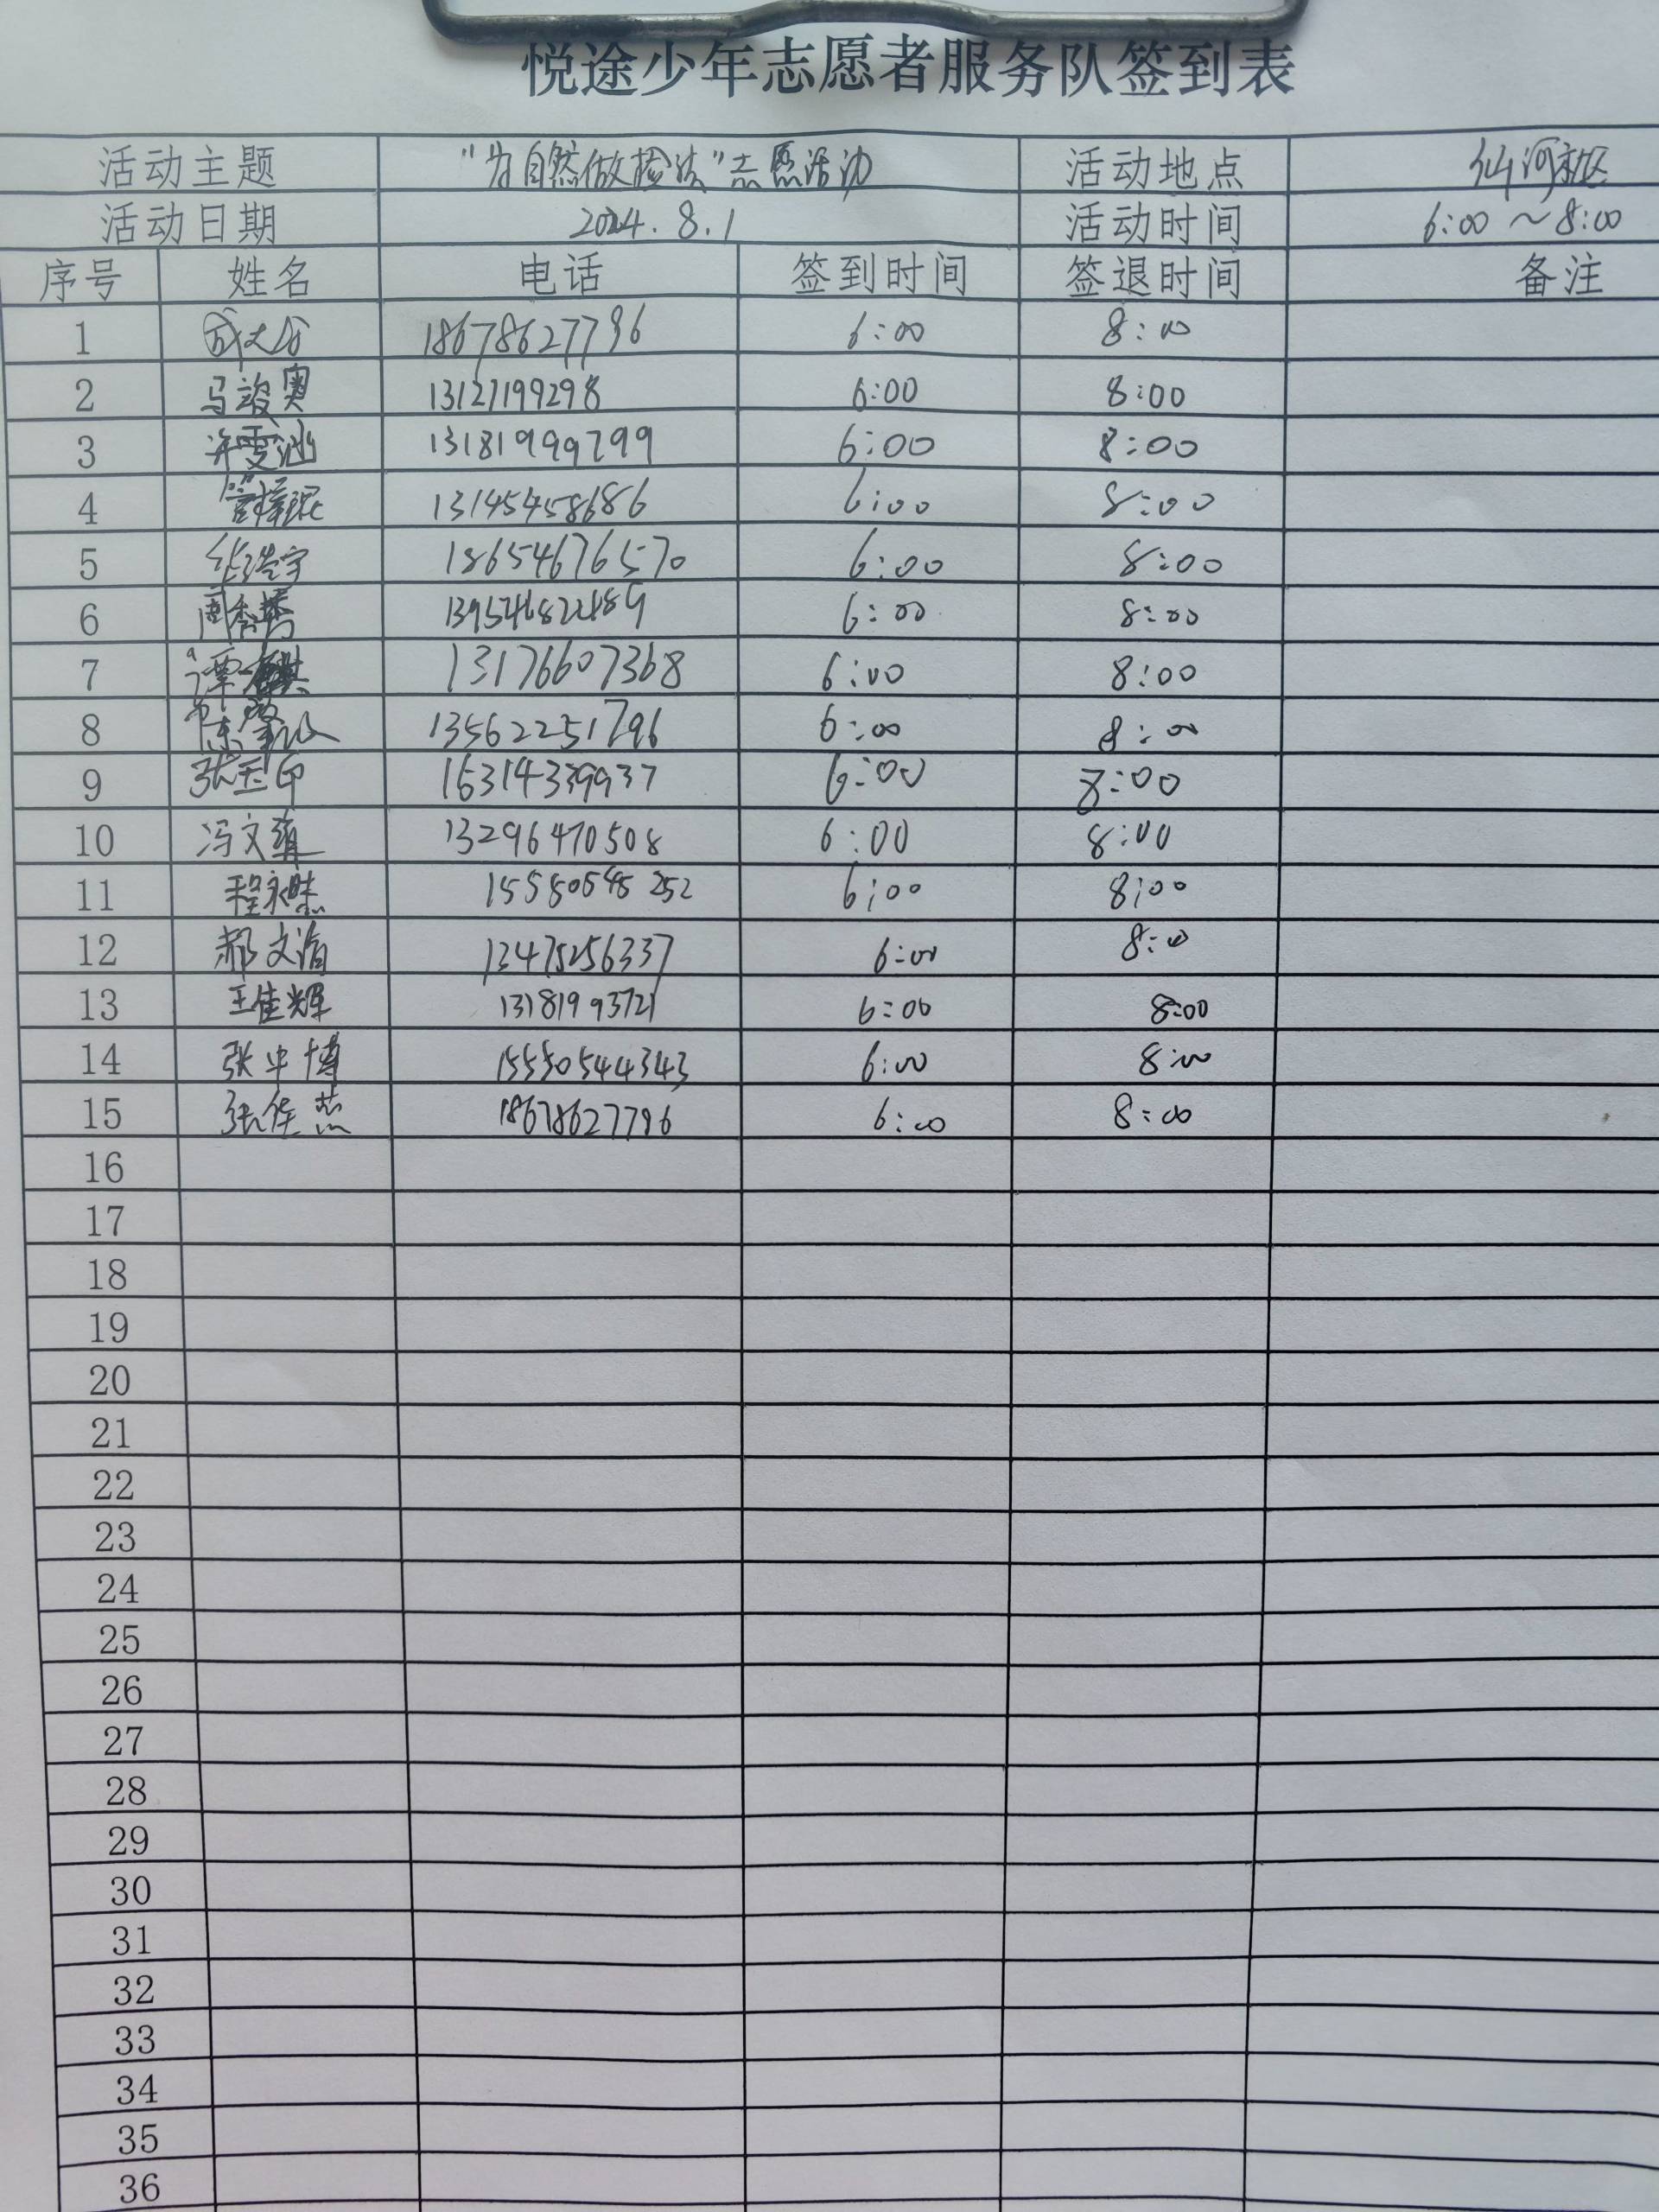 悦途少年志愿者服务队签到表
活动主题 "为自然做捡法"志愿活动 活动地点 仙河社区
活动日期 2024.8.1 活动时间 6:00～8:00
序号 姓名 电话 签到时间 签退时间 备注
1 18678627796 6:00 8:00
2 马竣奥 13127199298 6:00 8:00
3 许雯涵 13181999799 6:00 8:00
4 13145458686 6:00 8:00
5 张浩宇 18654676570 6:00 8:00
6 13954682489 6:00 8:00
7 13176607368 6:00 8:00
8 13562251796 6:00 8:00
9 张玉印 16314339937 6:00 8:00
10 冯文 13296470508 6:00 8:00
11 程永 15550548252 6:00 8:00
12 郝文 13475256337 6:00 8:00
13 王佳辉 13181993721 6:00 8:00
14 张中博 15550544343 6:00 8:00
15 张佳 18678627796 6:00 8:00
16
17
18
19
20
21
22
23
24
25
26
27
28
29
30
31
32
33
34
35
36